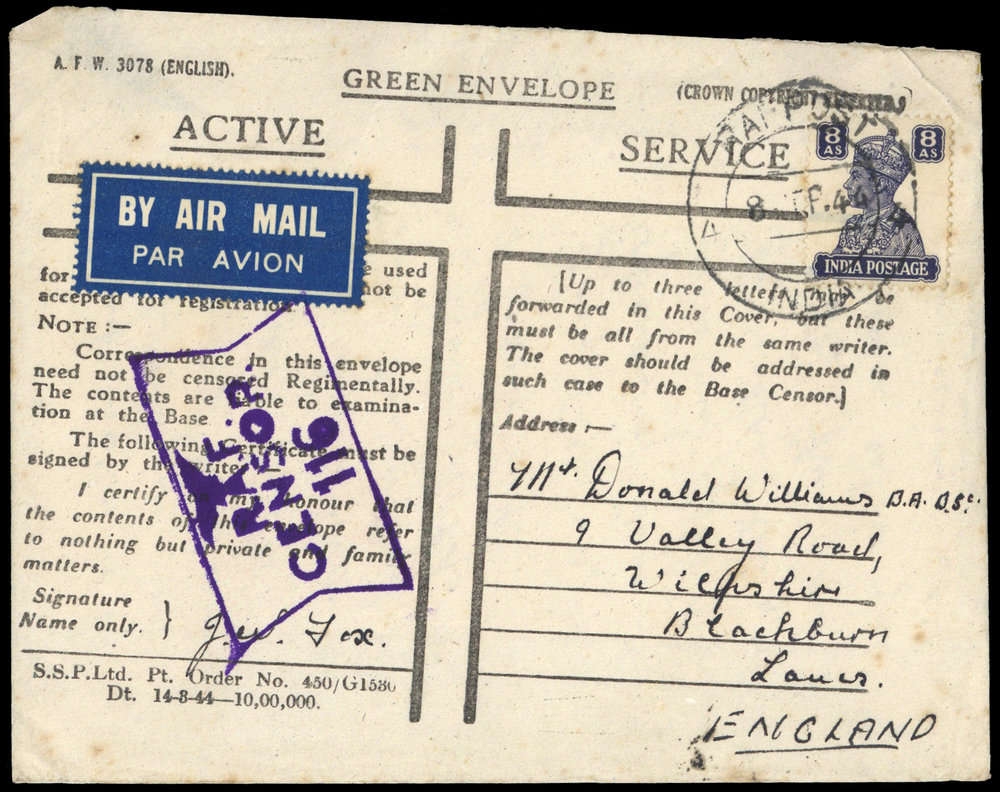 A. F. W. 3078 (ENGLISH).
GREEN ENVELOPE
(CROWN COPYRIGHT
ACTIVE SERVICE
BY AIR MAIL
PAR AVION
8 AS 8 AS
INDIA POSTAGE
POST
8 44
INDIA
for used
not be
accepted for registration
NOTE :—
Correspondence in this envelope
need not be censored Regimentally.
The contents are liable to examina-
tion at the Base
The following Certificate must be
signed by the writer
I certify on my honour that
the contents of this envelope refer
to nothing but private and family
matters.
Signature
Name only. }
Fox.
S.S.P.Ltd. Pt. Order No. 450/G1530
Dt. 14-3-44—10,00,000.
R.A.F.
CENSOR
116
[Up to three letters may be
forwarded in this Cover, but these
must be all from the same writer.
The cover should be addressed in
such case to the Base Censor.]
Address :—
Mr. Donald Williams B.A. B.Sc.
9 Valley Road,
Wilpshire
Blackburn
Lancs.
ENGLAND